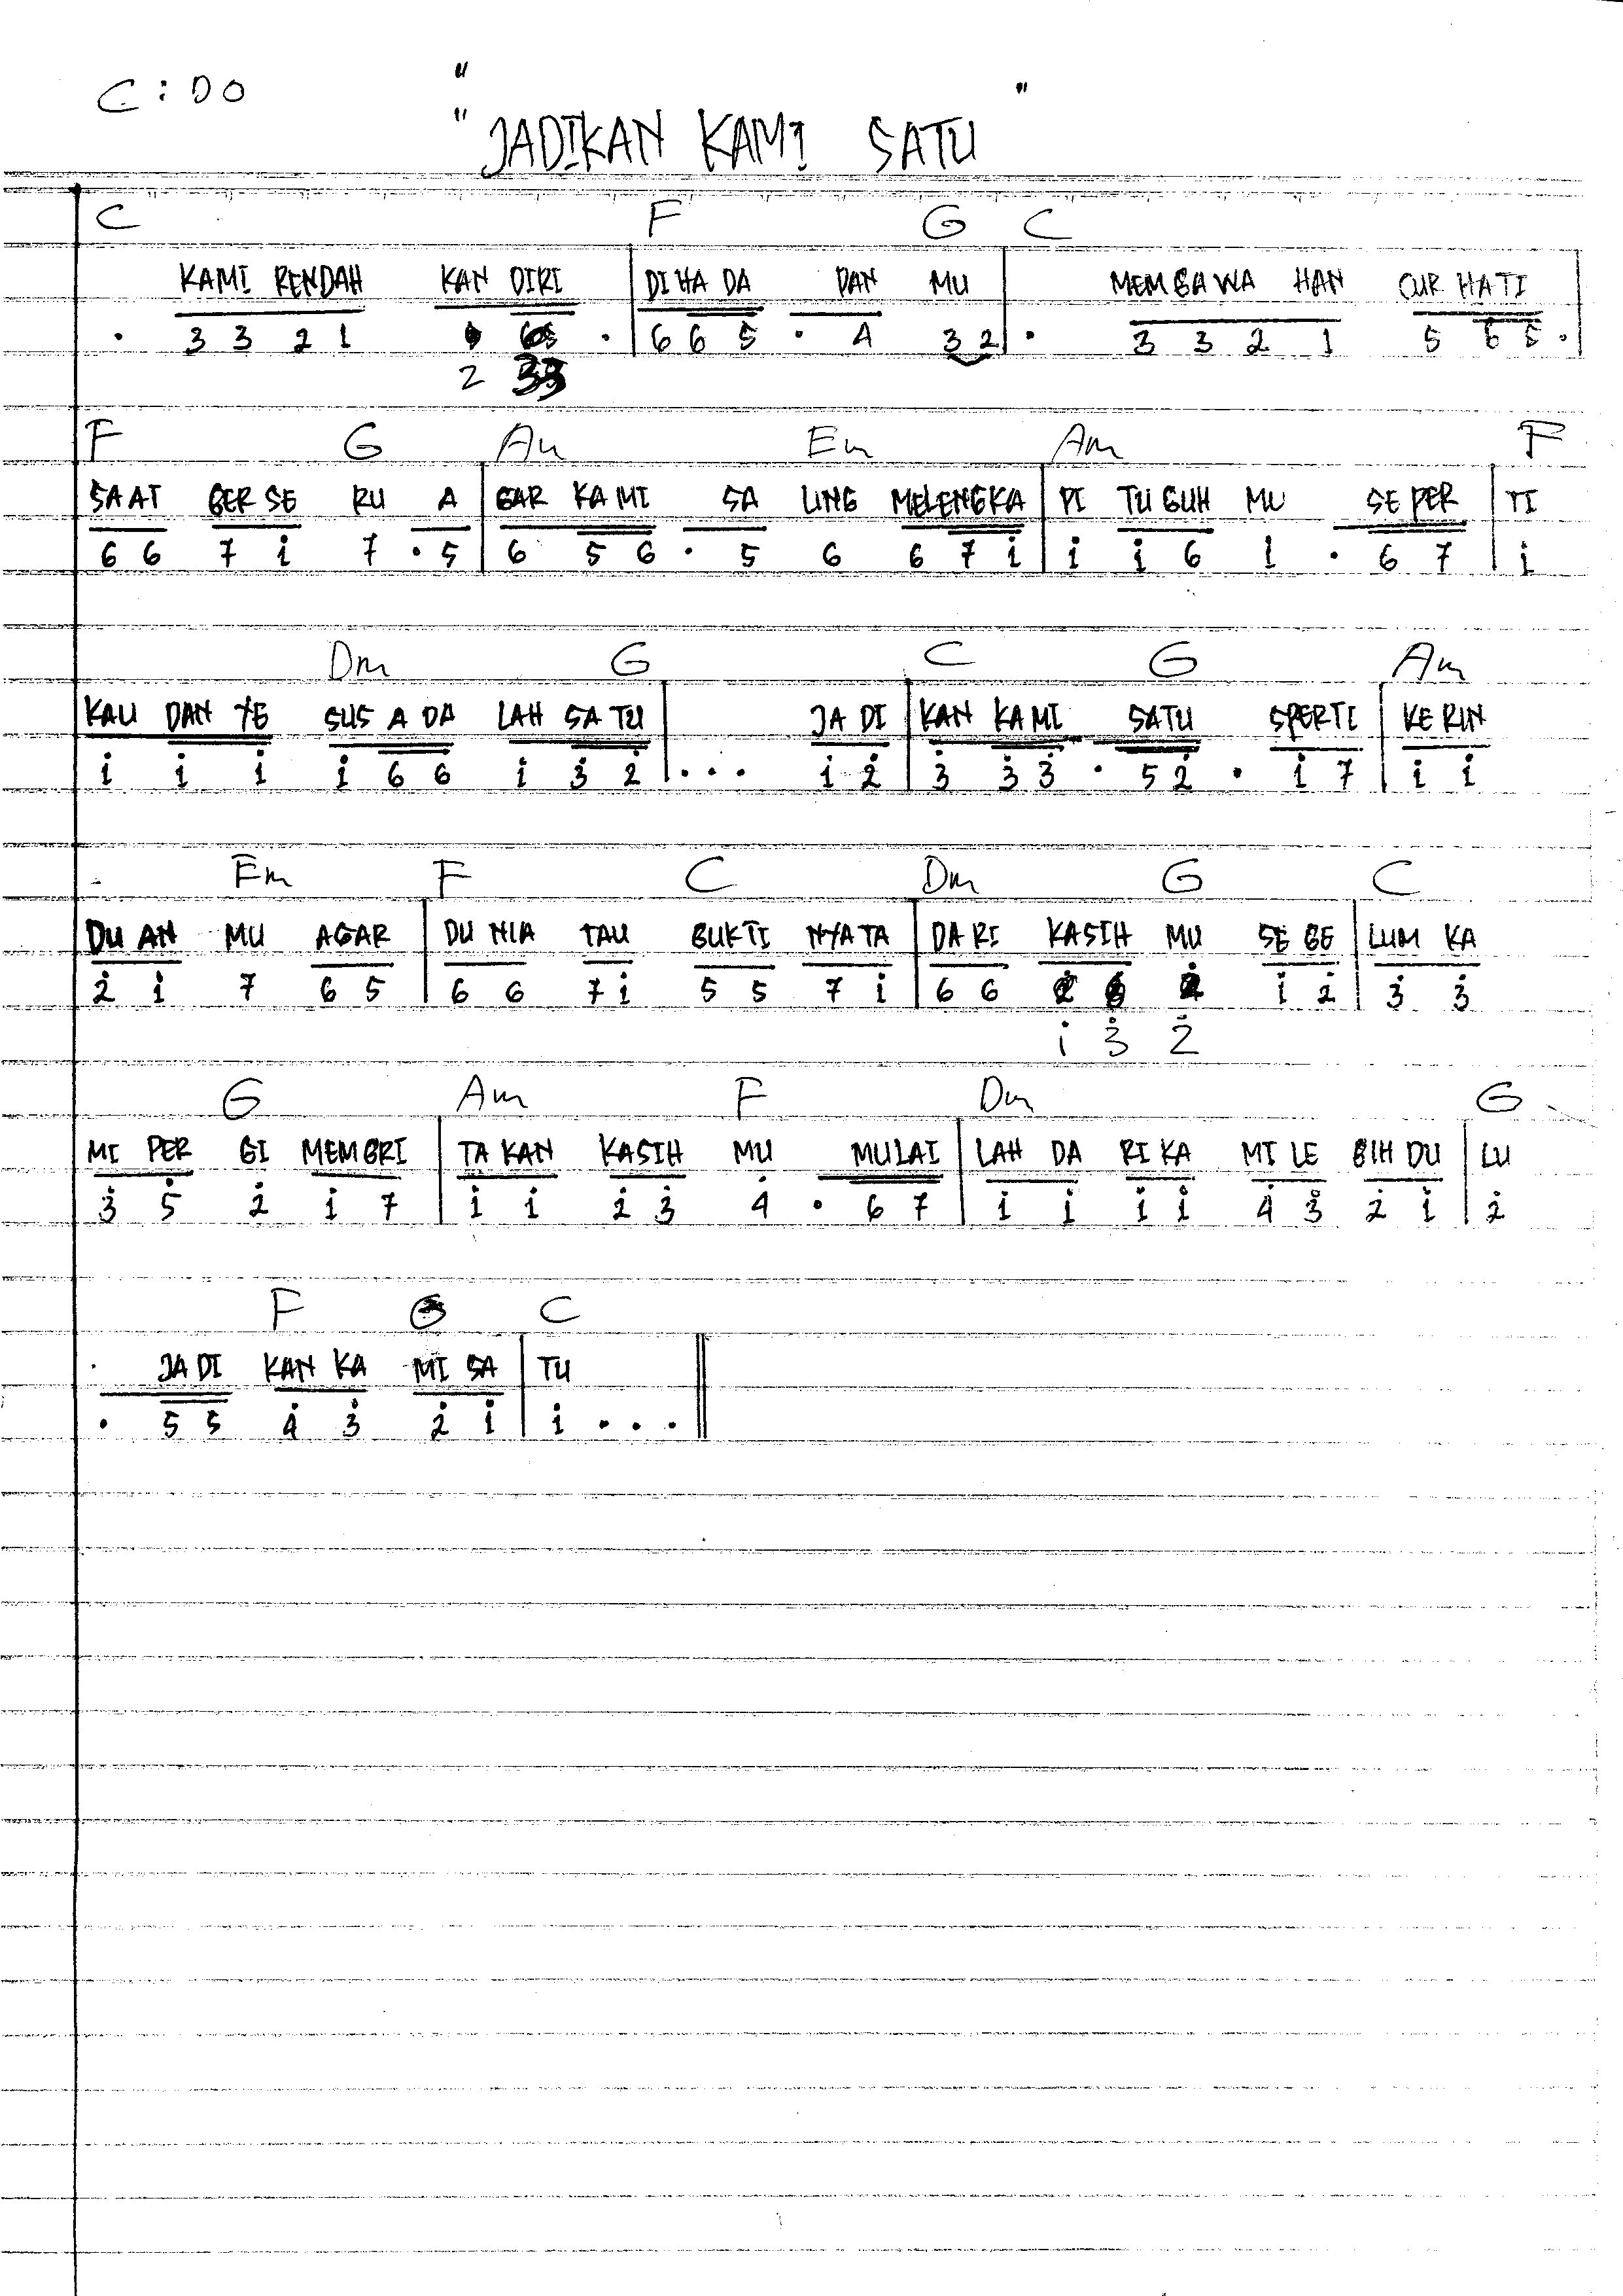 C : DO
" JADIKAN KAMI SATU "
C F G C
KAMI RENDAH KAN DIRI | DI HA DA PAN MU | MEMBAWA HAN CUR HATI |
. 3 3 2 1 . | 6 6 5 . 4 3 2 | . 3 3 2 1 5 6 5 . |
2 33
F G Am Em Am F
SAAT BER SE RU A | GAR KA MI SA LING MELENGKA | PI TU BUH MU SE PER | TI
6 6 7 i 7 . 5 | 6 5 6 . 5 6 6 7 i | i i 6 1 . 6 7 | i
Dm G C G Am
KAU DAN YE SUS A DA LAH SA TU | JA DI | KAN KA MI SATU SPERTI | KE RIN
i i i i 6 6 i 3̇ 2̇ | . . . i 2̇ | 3̇ 3̇ 3̇ . 5 2̇ . i 7 | i i
Em F C Dm G C
DU AN MU AGAR | DU NIA TAU BUKTI NYATA | DA RI KASIH MU SE BE | LUM KA
2̇ i 7 6 5 | 6 6 7 i 5 5 7 i | 6 6 2̇ i 2̇ | 3̇ 3̇
i 3̇ 2̇
G Am F Dm G
MI PER GI MEMBRI | TA KAN KASIH MU MULAI | LAH DA RI KA MI LE BIH DU | LU
3̇ 5̇ 2̇ i 7 | i i 2̇ 3̇ 4̇ . 6 7 | i i i i 4̇ 3̇ 2̇ i | 2̇
F G C
. JA DI KAN KA MI SA | TU
. 5 5 4̇ 3̇ 2̇ i | i . . . ||